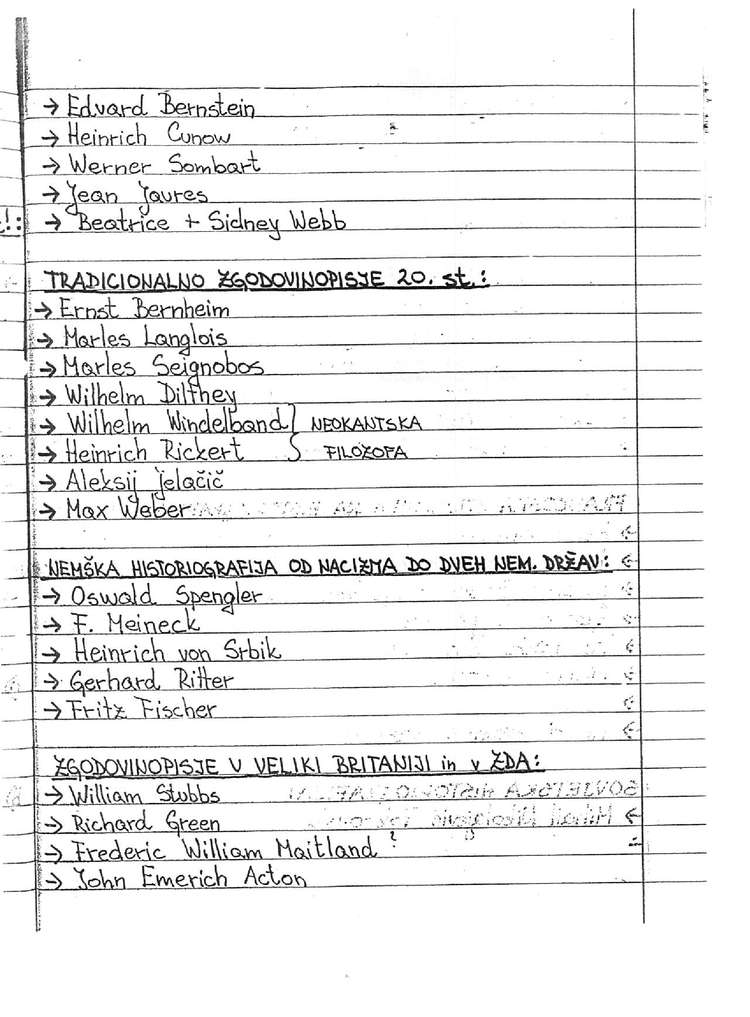 → Edvard Bernstein
→ Heinrich Cunow
→ Werner Sombart
→ Jean Jaures
!: → Beatrice + Sidney Webb
TRADICIONALNO ZGODOVINOPISJE 20. st.:
→ Ernst Bernheim
→ Marles Langlois
→ Marles Seignobos
→ Wilhelm Dilthey
→ Wilhelm Windelband } NEOKANTSKA
→ Heinrich Rickert FILOZOFA
→ Aleksij Jelačič
→ Max Weber
NEMŠKA HISTORIOGRAFIJA OD NACIZMA DO DVEH NEM. DRŽAV:
→ Oswald Spengler
→ F. Meineck
→ Heinrich von Srbik
→ Gerhard Ritter
→ Fritz Fischer
ZGODOVINOPISJE V VELIKI BRITANIJI in v ZDA:
→ William Stubbs
→ Richard Green
→ Frederic William Maitland ?
→ John Emerich Acton